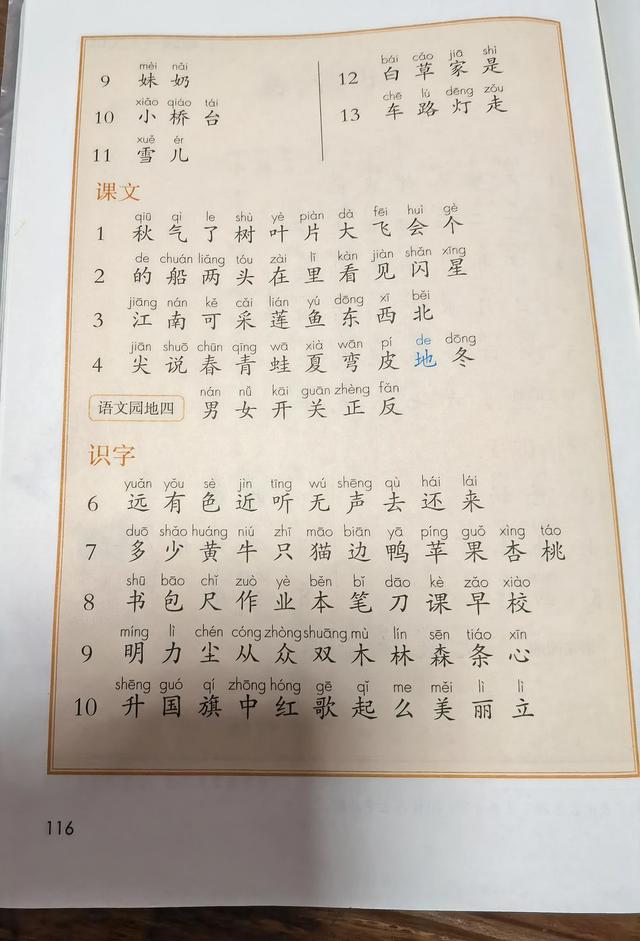 mèi nǎi
9 妹 奶
xiǎo qiáo tái
10 小 桥 台
xuě ér
11 雪 儿
bái cǎo jiā shì
12 白 草 家 是
chē lù dēng zǒu
13 车 路 灯 走
课文
qiū qì le shù yè piàn dà fēi huì gè
1 秋 气 了 树 叶 片 大 飞 会 个
de chuán liǎng tóu zài lǐ kàn jiàn shǎn xīng
2 的 船 两 头 在 里 看 见 闪 星
jiāng nán kě cǎi lián yú dōng xī běi
3 江 南 可 采 莲 鱼 东 西 北
jiān shuō chūn qīng wā xià wān pí de dōng
4 尖 说 春 青 蛙 夏 弯 皮 地 冬
nán nǚ kāi guān zhèng fǎn
语文园地四 男 女 开 关 正 反
识字
yuǎn yǒu sè jìn tīng wú shēng qù hái lái
6 远 有 色 近 听 无 声 去 还 来
duō shǎo huáng niú zhī māo biān yā píng guǒ xìng táo
7 多 少 黄 牛 只 猫 边 鸭 苹 果 杏 桃
shū bāo chǐ zuò yè běn bǐ dāo kè zǎo xiào
8 书 包 尺 作 业 本 笔 刀 课 早 校
míng lì chén cóng zhòng shuāng mù lín sēn tiáo xīn
9 明 力 尘 从 众 双 木 林 森 条 心
shēng guó qí zhōng hóng gē qǐ me měi lì lì
10 升 国 旗 中 红 歌 起 么 美 丽 立
116